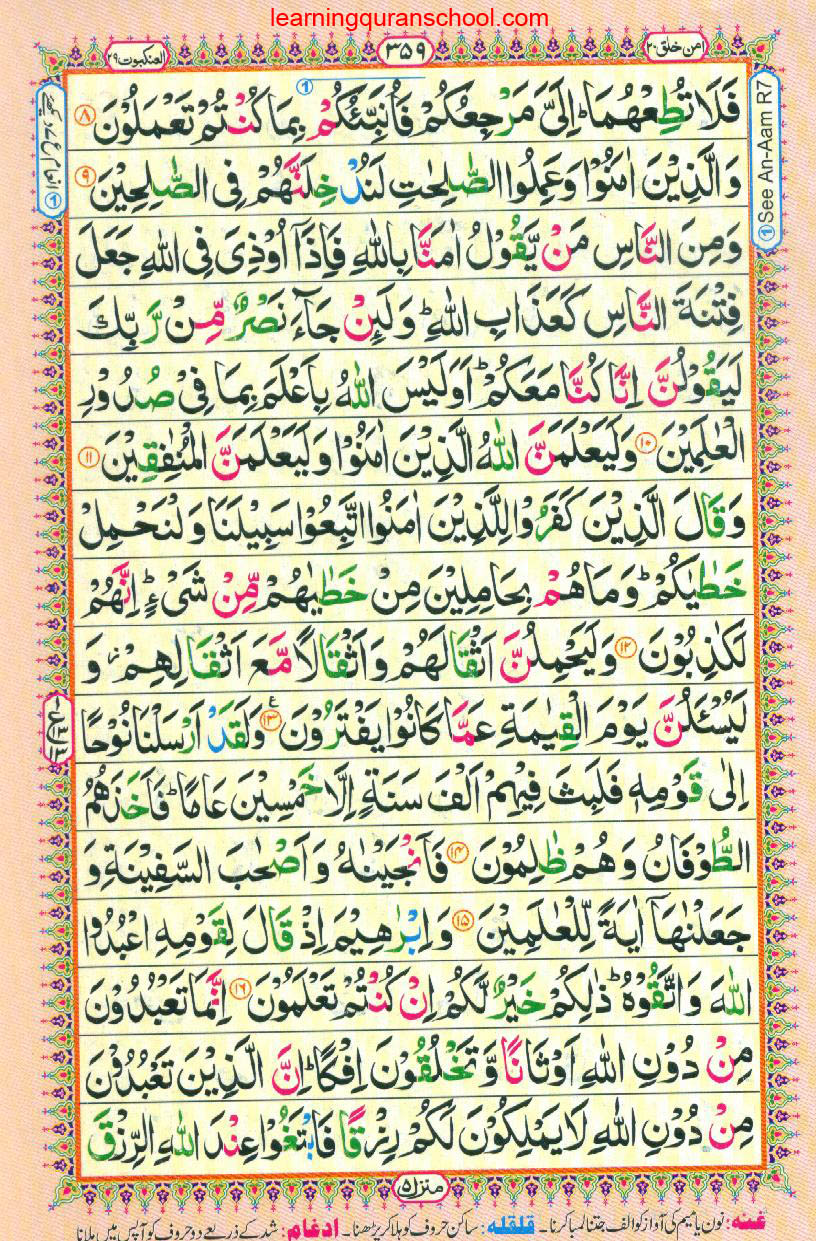 learningquranschool.com
امن خلق ٢٠
٣٥٩
العنكبوت ٢٩
فَلَا تُطِعْهُمَا ؕ اِلَیَّ مَرْجِعُكُمْ فَاُنَبِّئُكُمْ بِمَا كُنْتُمْ تَعْمَلُوْنَ ٨
وَالَّذِیْنَ اٰمَنُوْا وَعَمِلُوا الصّٰلِحٰتِ لَنُدْخِلَنَّهُمْ فِی الصّٰلِحِیْنَ ٩
وَمِنَ النَّاسِ مَنْ یَّقُوْلُ اٰمَنَّا بِاللّٰهِ فَاِذَاۤ اُوْذِیَ فِی اللّٰهِ جَعَلَ
فِتْنَةَ النَّاسِ كَعَذَابِ اللّٰهِ ؕ وَلَىِٕنْ جَآءَ نَصْرٌ مِّنْ رَّبِّكَ
لَیَقُوْلُنَّ اِنَّا كُنَّا مَعَكُمْ ؕ اَوَلَیْسَ اللّٰهُ بِاَعْلَمَ بِمَا فِیْ صُدُوْرِ
الْعٰلَمِیْنَ ١٠ وَلَیَعْلَمَنَّ اللّٰهُ الَّذِیْنَ اٰمَنُوْا وَلَیَعْلَمَنَّ الْمُنٰفِقِیْنَ ١١
وَقَالَ الَّذِیْنَ كَفَرُوْا لِلَّذِیْنَ اٰمَنُوا اتَّبِعُوْا سَبِیْلَنَا وَلْنَحْمِلْ
خَطٰیٰكُمْ ؕ وَمَا هُمْ بِحَامِلِیْنَ مِنْ خَطٰیٰهُمْ مِّنْ شَیْءٍ ؕ اِنَّهُمْ
لَكٰذِبُوْنَ ١٢ وَلَیَحْمِلُنَّ اَثْقَالَهُمْ وَاَثْقَالًا مَّعَ اَثْقَالِهِمْ ز وَ
لَیُسْـَٔلُنَّ یَوْمَ الْقِیٰمَةِ عَمَّا كَانُوْا یَفْتَرُوْنَ ١٣ ع وَلَقَدْ اَرْسَلْنَا نُوْحًا
اِلٰی قَوْمِهٖ فَلَبِثَ فِیْهِمْ اَلْفَ سَنَةٍ اِلَّا خَمْسِیْنَ عَامًا ؕ فَاَخَذَهُمُ
الطُّوْفَانُ وَهُمْ ظٰلِمُوْنَ ١٤ فَاَنْجَیْنٰهُ وَاَصْحٰبَ السَّفِیْنَةِ وَ
جَعَلْنٰهَاۤ اٰیَةً لِّلْعٰلَمِیْنَ ١٥ وَاِبْرٰهِیْمَ اِذْ قَالَ لِقَوْمِهِ اعْبُدُوا
اللّٰهَ وَاتَّقُوْهُ ؕ ذٰلِكُمْ خَیْرٌ لَّكُمْ اِنْ كُنْتُمْ تَعْلَمُوْنَ ١٦ اِنَّمَا تَعْبُدُوْنَ
مِنْ دُوْنِ اللّٰهِ اَوْثَانًا وَّتَخْلُقُوْنَ اِفْكًا ؕ اِنَّ الَّذِیْنَ تَعْبُدُوْنَ
مِنْ دُوْنِ اللّٰهِ لَا یَمْلِكُوْنَ لَكُمْ رِزْقًا فَابْتَغُوْا عِنْدَ اللّٰهِ الرِّزْقَ
① See An-Aam R7
منزل ٥
غنہ: نون یا میم کی آواز کو الف جتنا لمبا کرنا۔ قلقلہ: ساکن حروف کو ہلا کر پڑھنا۔ ادغام: شد کے ذریعے دو حروف کو آپس میں ملانا